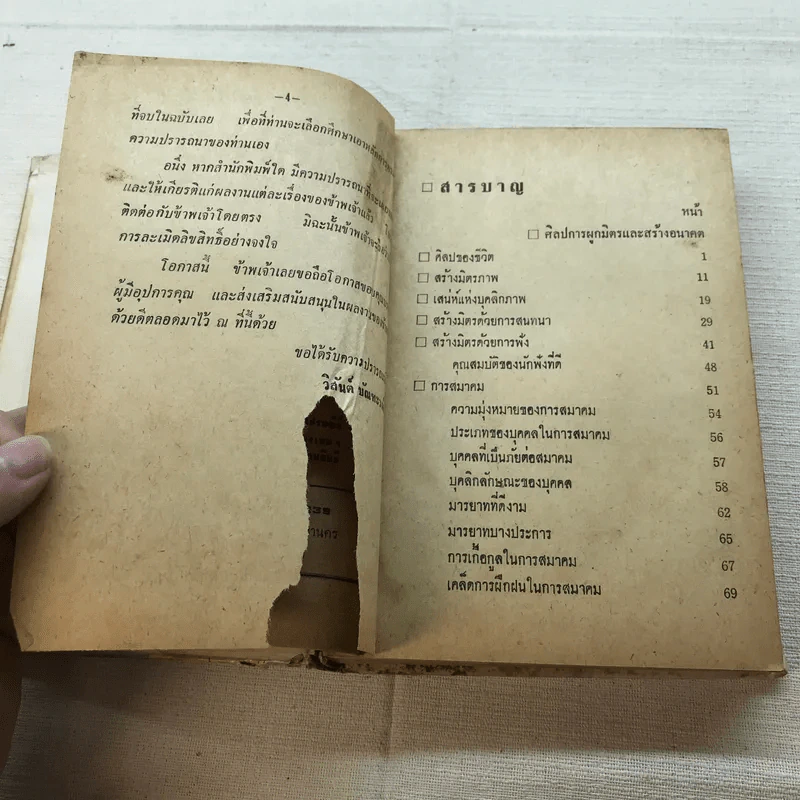 -4-
ที่จบในฉบับเลย เพื่อที่ท่านจะเลือกศึกษาเอา
ความปรารถนาของท่านเอง
อนึ่ง หากสำนักพิมพ์ใด มีความปรารถนาที่จะ
และให้เกียรติแก่ผลงานแต่ละเรื่องของข้าพเจ้าแล้ว
ติดต่อกับข้าพเจ้าโดยตรง มิฉะนั้นข้าพเจ้าจะ
การละเมิดลิขสิทธิ์อย่างจงใจ
โอกาสนี้ ข้าพเจ้าเลยขอถือโอกาสขอบคุณ
ผู้มีอุปการคุณ และส่งเสริมสนับสนุนในผลงานของ
ด้วยดีตลอดมาไว้ ณ ที่นี้ด้วย
ขอได้รับความปรารถนา
วิสันต์
สารบาญ
หน้า
ศิลปการผูกมิตรและสร้างอนาคต
ศิลปของชีวิต 1
สร้างมิตรภาพ 11
เสน่ห์แห่งบุคลิกภาพ 19
สร้างมิตรด้วยการสนทนา 29
สร้างมิตรด้วยการฟัง 41
คุณสมบัติของนักฟังที่ดี 48
การสมาคม 51
ความมุ่งหมายของการสมาคม 54
ประเภทของบุคคลในการสมาคม 56
บุคคลที่เป็นภัยต่อสมาคม 57
บุคลิกลักษณะของบุคคล 58
มารยาทที่ดีงาม 62
มารยาทบางประการ 65
การเกื้อกูลในการสมาคม 67
เคล็ดการฝึกฝนในการสมาคม 69